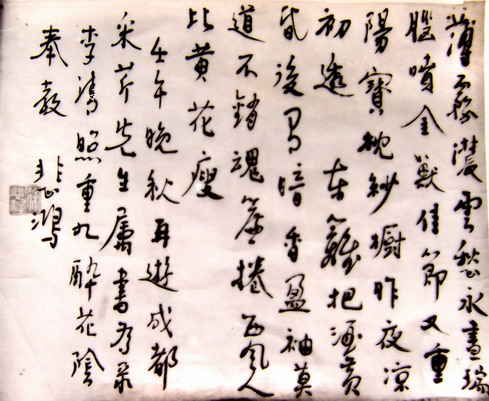 薄霧濃雲愁永晝瑞
腦噴金獸佳節又重
陽寶枕紗橱昨夜涼
初透 東籬把酒黃
昏後有暗香盈袖莫
道不銷魂簾捲西風人
比黃花瘦
壬午晚秋再遊成都
采芹先生屬書為录
李清照重九醉花陰
奉教 悲鴻